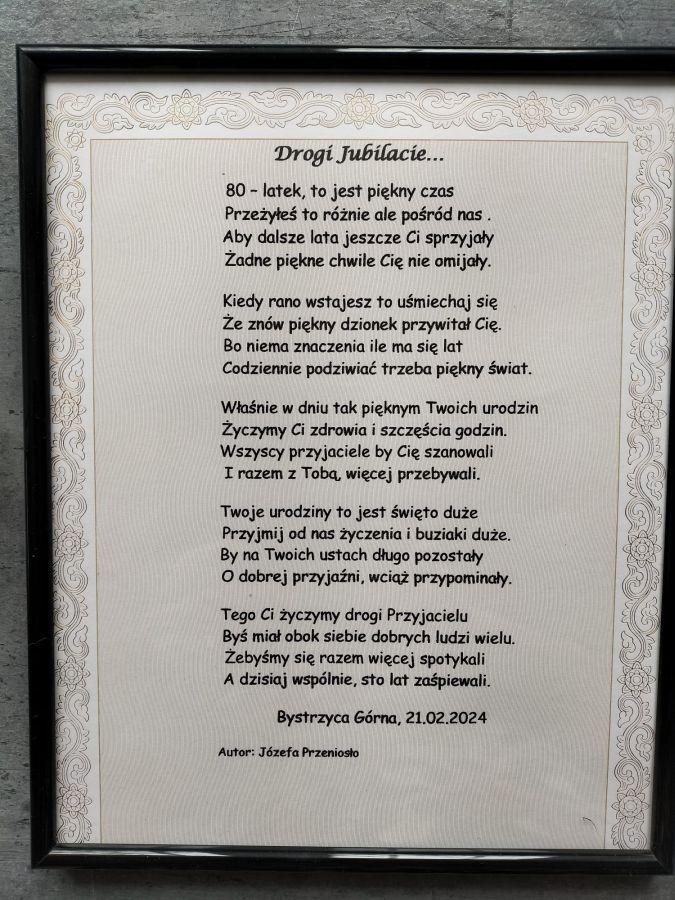 Drogi Jubilacie...
80 – latek, to jest piękny czas
Przeżyłeś to różnie ale pośród nas .
Aby dalsze lata jeszcze Ci sprzyjały
Żadne piękne chwile Cię nie omijały.
Kiedy rano wstajesz to uśmiechaj się
Że znów piękny dzionek przywitał Cię.
Bo niema znaczenia ile ma się lat
Codziennie podziwiać trzeba piękny świat.
Właśnie w dniu tak pięknym Twoich urodzin
Życzymy Ci zdrowia i szczęścia godzin.
Wszyscy przyjaciele by Cię szanowali
I razem z Tobą, więcej przebywali.
Twoje urodziny to jest święto duże
Przyjmij od nas życzenia i buziaki duże.
By na Twoich ustach długo pozostały
O dobrej przyjaźni, wciąż przypominały.
Tego Ci życzymy drogi Przyjacielu
Byś miał obok siebie dobrych ludzi wielu.
Żebyśmy się razem więcej spotykali
A dzisiaj wspólnie, sto lat zaśpiewali.
Bystrzyca Górna, 21.02.2024
Autor: Józefa Przeniosło